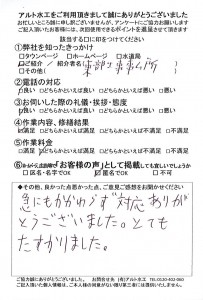 アルト水工をご利用頂きまして誠にありがとうございました
お忙しいところ誠に申し訳ございませんが、アンケートにご協力お願いします
ご記入頂いたお客様には、次回使用できるポイントを進呈させて頂きます
該当する口に印をつけてください
①弊社を知ったきっかけ
□タウンページ □ホームページ □水道局
ご紹介／紹介者名（
□その他（
②電話の対応
良い □どちらかといえば良い □どちらかといえば悪い □悪い
③お伺いした際の礼儀・挨拶・態度
良い □どちらかといえば良い □どちらかといえば悪い □悪い
④作業内容、修繕結果
満足 □どちらかといえば満足 □どちらかといえば不満足 □不満足
⑤作業料金
満足 □どちらかといえば満足 □どちらかといえば不満足 □不満足
「お客様の声」として掲載しても宜しいでしょうか
□区名・名字でOK 匿名でOK □不可
◆その他、良かった点悪かった点、ご意見ご感想をお聞かせください
急にもかかわらず対応ありが
とうございました。とても
たすかりました。
ご協力誠にありがとうございました。 お問合せ先 (有)アルト水工 TEL:0120-402-060